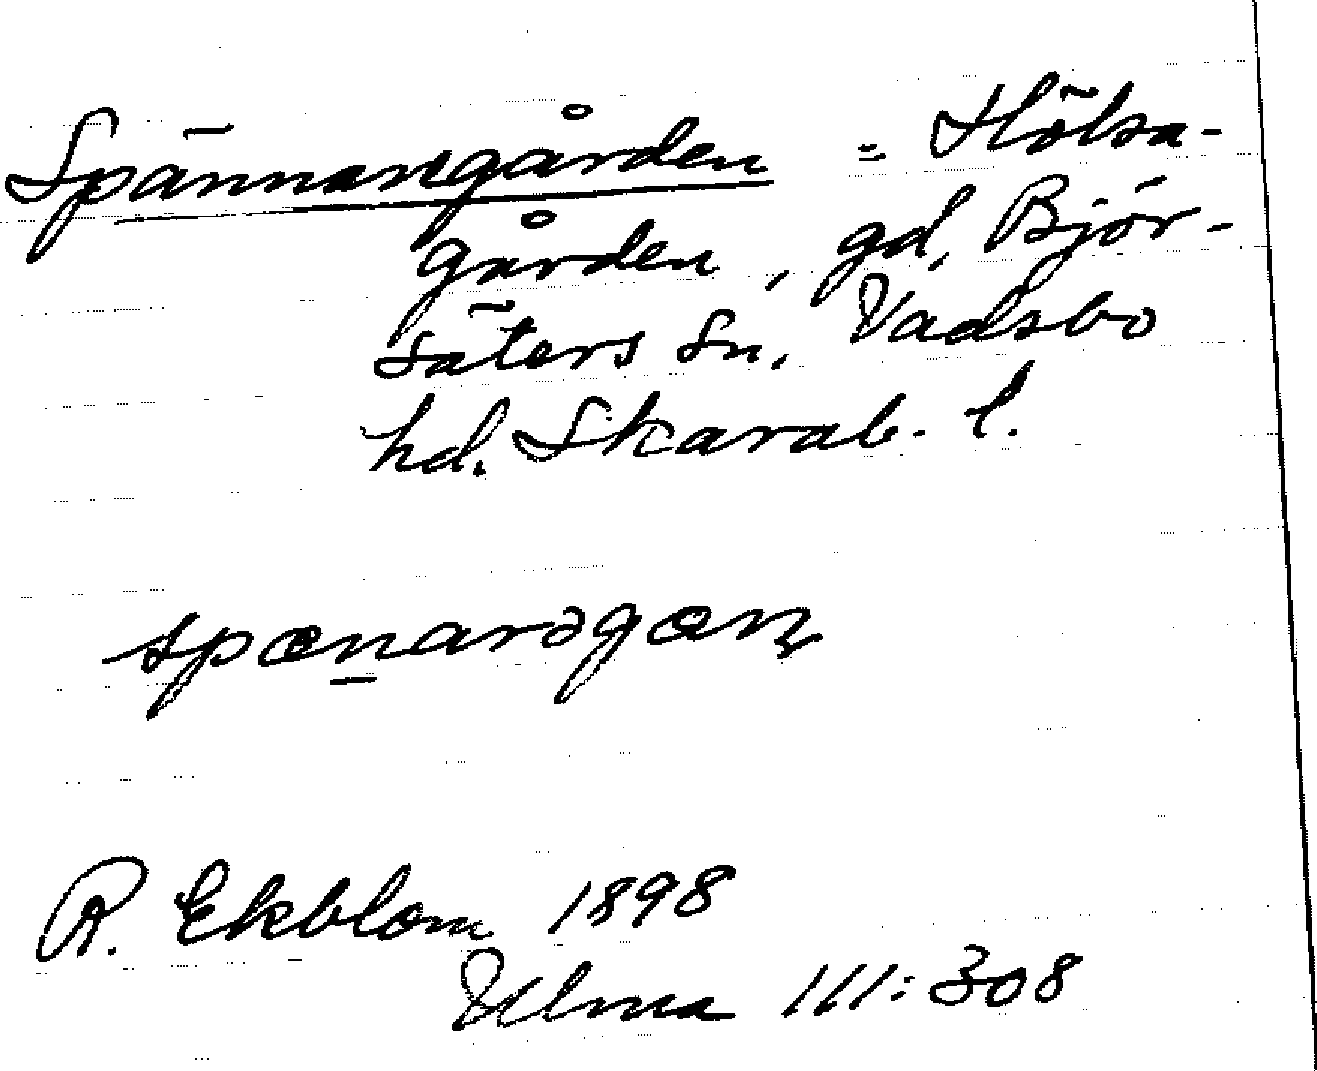 Spännansgården = Hölsa-
gården, gd, Björ-
säters sn, Vadsbo
hd. Skarab. l.
spænarəgan
R. Ekblom 1898
Ulma 111:308